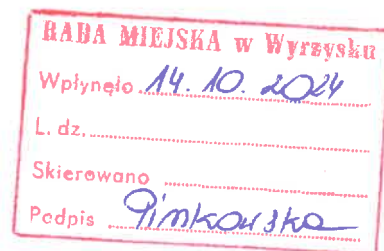 RADA MIEJSKA w Wyrzysku
Wpłynęło 14. 10. 2024
L. dz.
Skierowano
Podpis Pinkowska